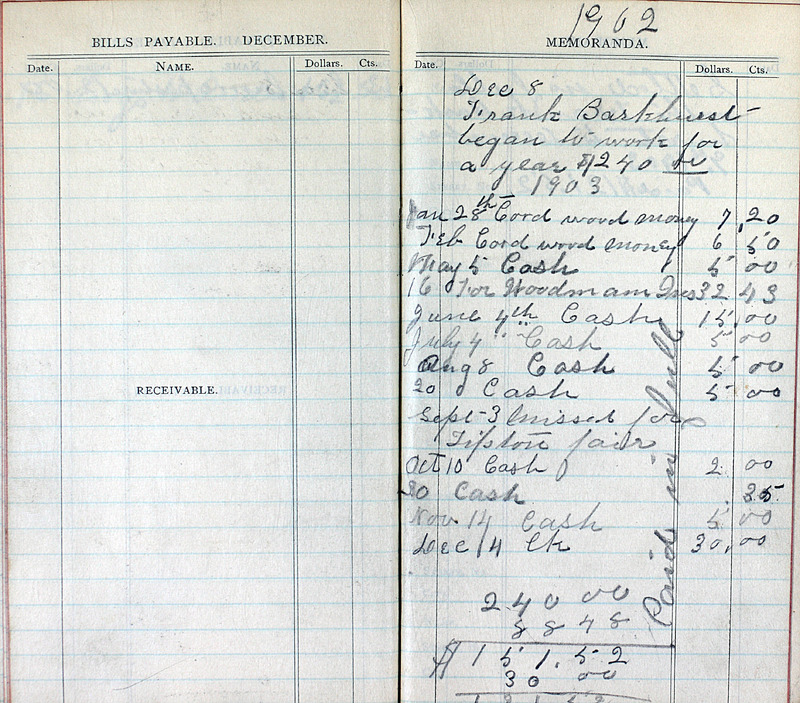 BILLS PAYABLE. DECEMBER.
Date. NAME. Dollars. Cts.
RECEIVABLE.
1902
MEMORANDA.
Date. Dollars. Cts.
Dec 8
Frank Barkhurst
began to work for
a year $240 00
1903
Jan 28th Cord wood money 7,20
Feb Cord wood money 6 50
May 5 Cash 5 00
16 For Woodman Ins 32 43
June 4th Cash 15,00
July 4 " Cash 5 00
Aug 8 Cash 5 00
20 Cash 5 00
Sept 3 missed for
Tipton fair
Oct 10 Cash 2 00
30 Cash .35
Nov 14 Cash 5 00
Dec 14 Ck 30,00
Paid in full
240 00
88 48
$151.52
30 00